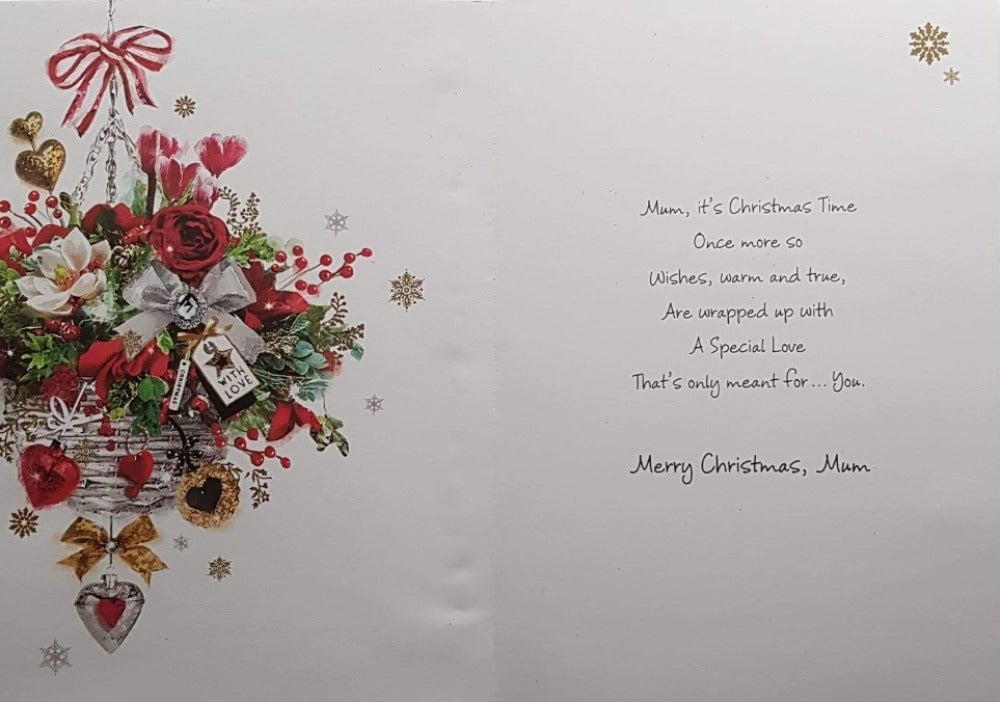 CHRISTMAS
WITH
LOVE
Mum, it's Christmas Time
Once more so
Wishes, warm and true,
Are wrapped up with
A Special Love
That's only meant for... You.
Merry Christmas, Mum